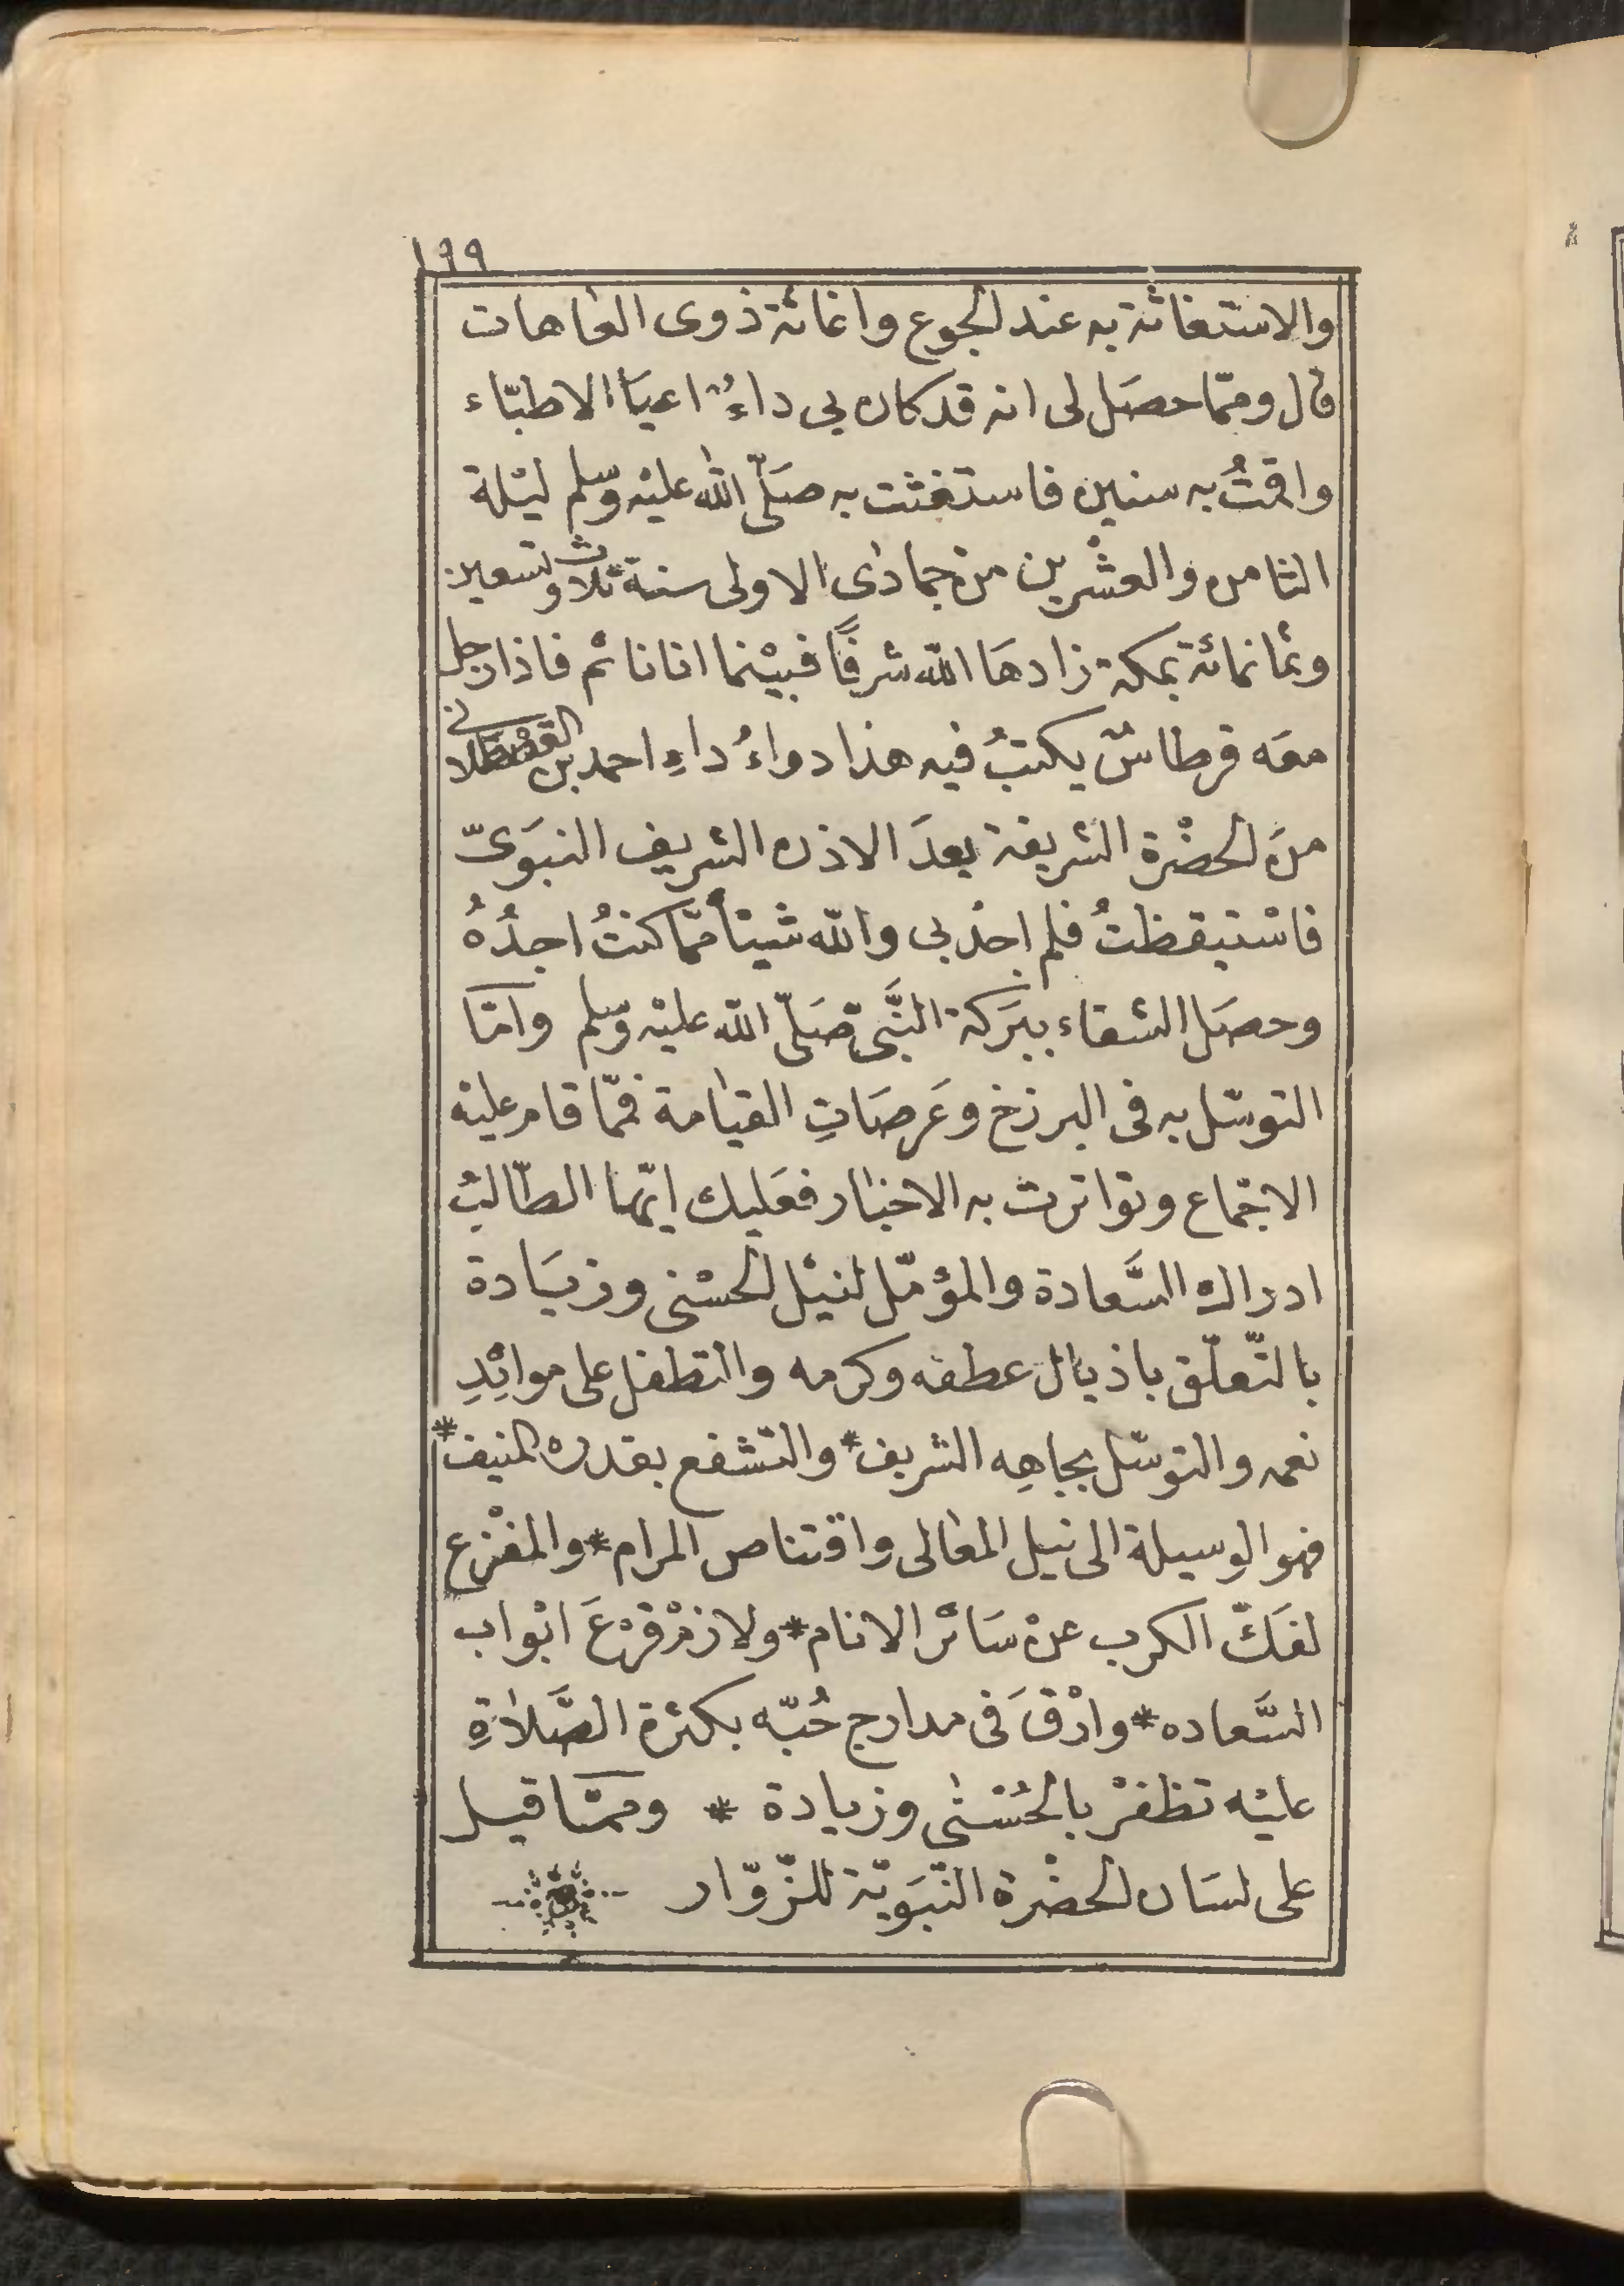 ١٩٩
والاستغاثة به عند الجوع واغاثة ذوى العاهات
قال وممّا حصَل لى انه قد كان بى داءٌ اعيَا الاطبّاء
واقمتُ به سنين فاستغثت به صَلّى الله عليْه وسلم ليْلة
الثامن والعشْرين من جمادى الاولى سنة ثلاث وتسعين
وثمانمائة بمكة زادهَا الله شرفًا فبيْنما انا نائم فاذا رجل
معَه قرطاسٌ يكتبُ فيه هذا دواءُ داءِ احمد بن القسْطلانى
منَ الحضْرة الشريفة بعدَ الاذن الشريف النبَوىّ
فاسْتيقظتُ فلم اجدْ بى والله شيئاً ممّا كنتُ اجدُهُ
وحصَل الشفاء ببَركة النَّبى صَلّى الله عليْه وسلم وامّا
التوسّل به فى البرزخ وعَرصَاتِ القيامة فممّا قام عليْه
الاجماع وتواترت به الاخبار فعَليك ايّها الطّالبُ
ادراك السَّعادة والمؤمّل لنيْل الحسْنى وزيَادة
بالتّعلّق باذيال عطفه وكرمه والتطفل على موائِدِ
نعمه والتوسّل بجاهِه الشريف* والتّشفع بقدره المنيف*
فهو الوسيلة الى نيل المعالى واقتناص المرام* والمفْزع
لفَكّ الكرب عنْ سَائر الانام* ولازمْ قرْعَ ابْواب
السَّعاده* وارْقَ فى مدارج حُبّه بكثرة الصَّلاةِ
عليْه تظفرْ بالحُسْنى وزيادة * وممّا قيل
على لسَان الحضْرة النّبَويّة للزّوّار